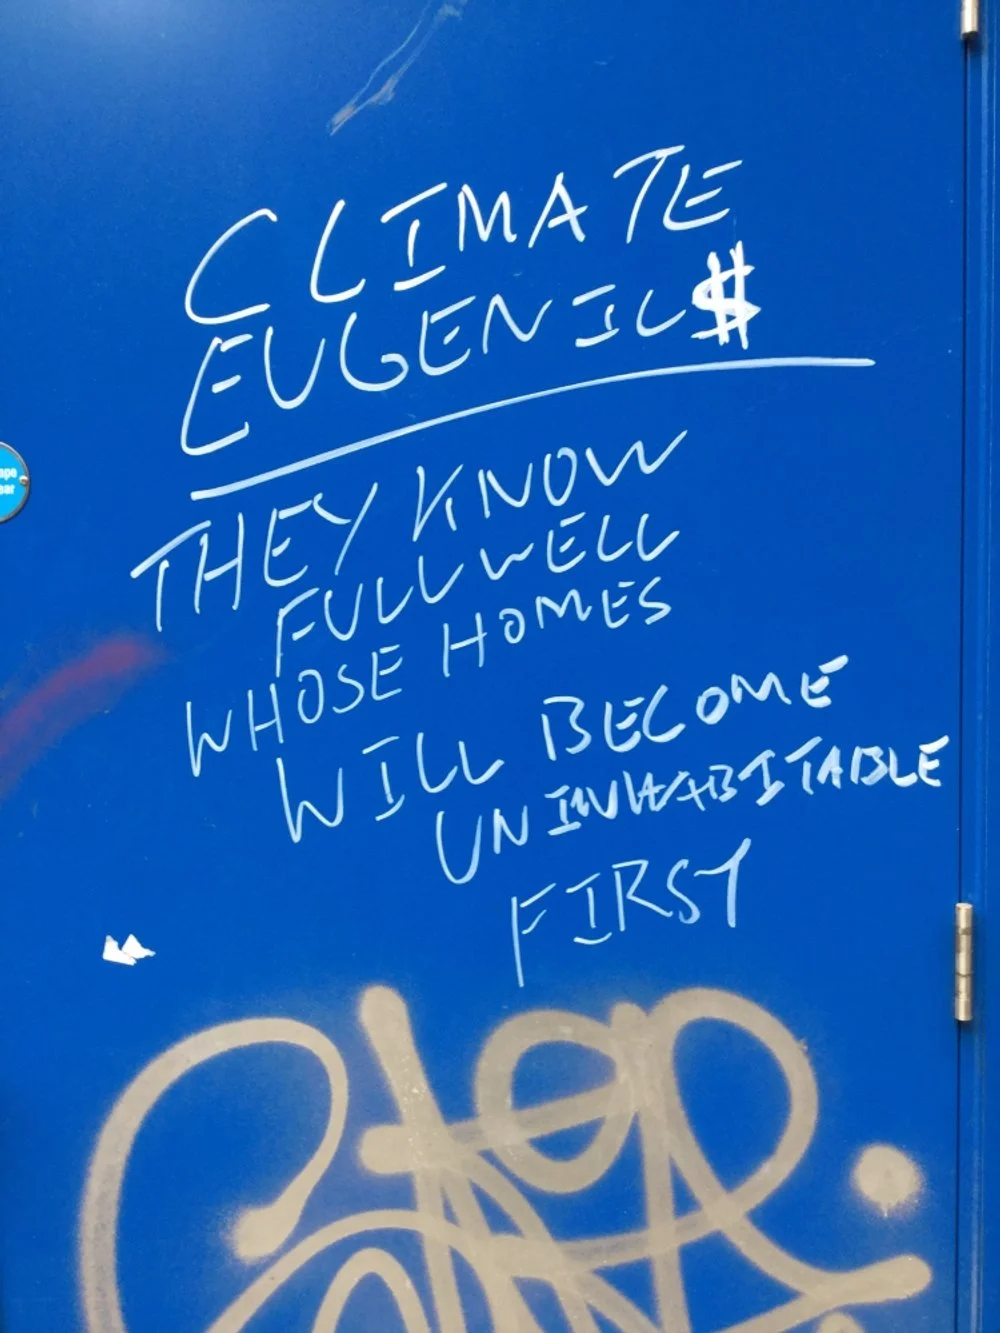 CLIMATE
EUGENIC$
THEY KNOW
FULL WELL
WHOSE HOMES
WILL BECOME
UNINHABITABLE
FIRST